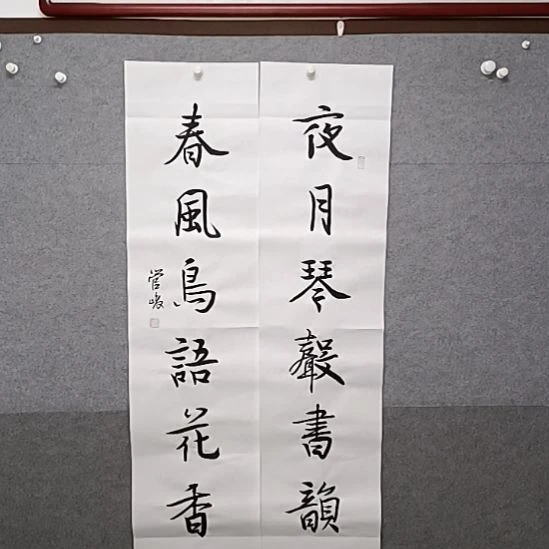 夜月琴聲書韻
春風鳥語花香
管峻